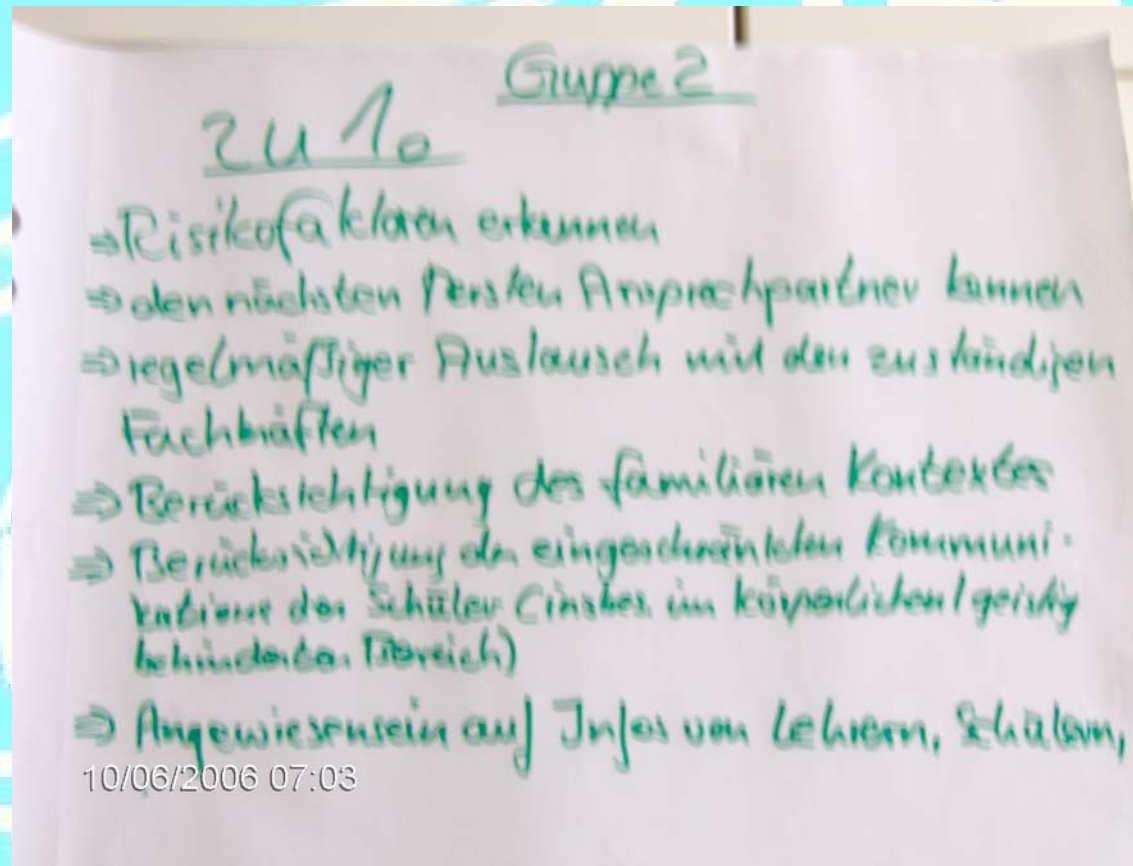 Gruppe 2
zu 1.
⇒ Risikofaktoren erkennen
⇒ den nächsten Ansprechpartner kennen
⇒ regelmäßiger Austausch mit den zuständigen
Fachkräften
⇒ Berücksichtigung des familiären Kontextes
⇒ Berücksichtigung der eingeschränkten Kommuni-
der Schüler (insbes. im körperlichen/geistig
behinderten Bereich)
⇒ Angewiesensein auf Infos von Lehrern, Schülern,
10/06/2006 07:03